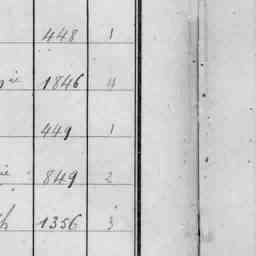 448 1
1846 4
449 1
849 2
1356 3